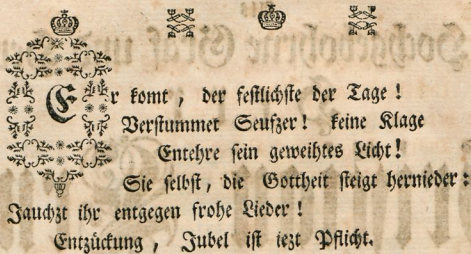 Er komt, der festlichste der Tage!
Verstummet Seufzer! keine Klage
Entehre sein geweihtes Licht!
Sie selbst, die Gottheit steigt hernieder:
Jauchzt ihr entgegen frohe Lieder!
Entzückung, Jubel ist iezt Pflicht.